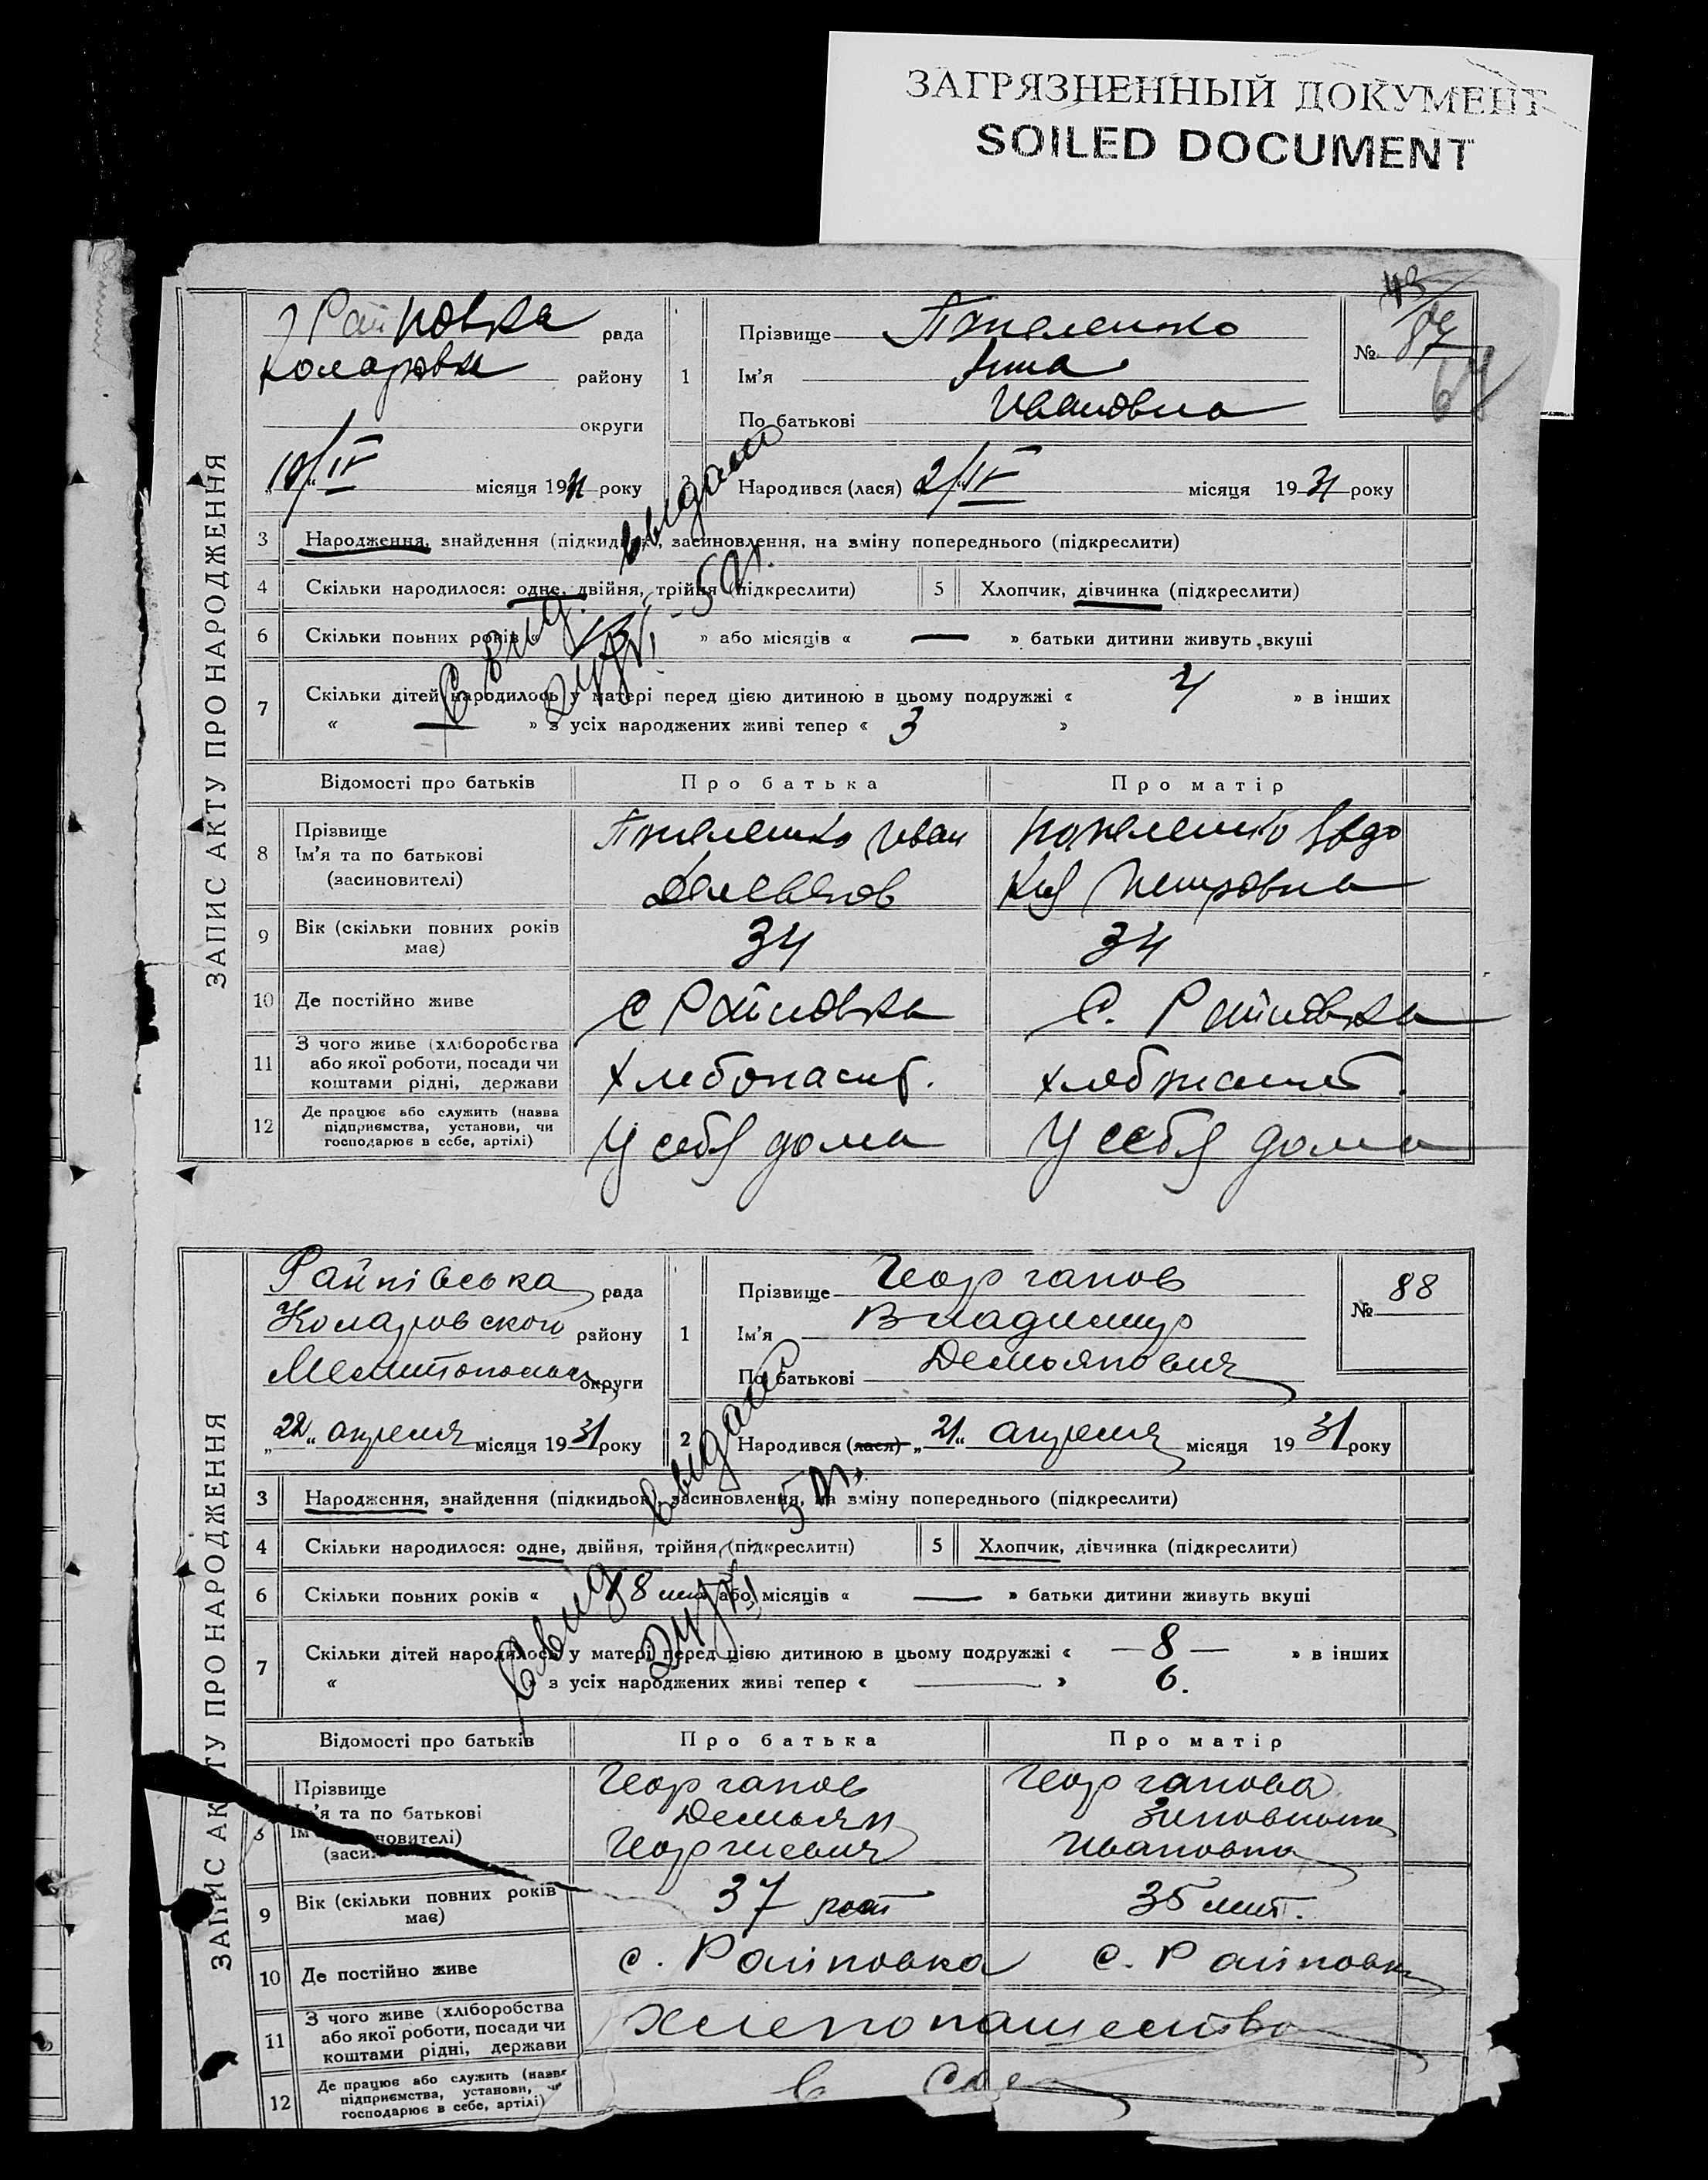 ЗАГРЯЗНЕННЫЙ ДОКУМЕНТ
SOILED DOCUMENT
ЗАПИС АКТУ ПРО НАРОДЖЕННЯ
Райновка рада
району
округи
10/IV місяця 1931 року
1 Прізвище
Ім'я
По батькові Ивановна
№ 87
Народився (лася) 2/IV місяця 1931 року
3 Народження, знайдення (підкидьок), засиновлення, на зміну попереднього (підкреслити)
4 Скільки народилося: одне, двійня, трійня (підкреслити)
5 Хлопчик, дівчинка (підкреслити)
6 Скільки повних років « » або місяців « — » батьки дитини живуть вкупі
7 Скільки дітей народилось у матері перед цією дитиною в цьому подружжі « 4 » в інших
« — » з усіх народжених живі тепер « 3 »
Відомості про батьків Про батька Про матір
8 Прізвище
Ім'я та по батькові
(засиновителі)
Иван
Петровна
9 Вік (скільки повних років має) 34 34
10 Де постійно живе с Райновка с. Райновка
11 З чого живе (хліборобства або якої роботи, посади чи коштами рідні, держави
12 Де працює або служить (назва підприємства, установи, чи господарює в себе, артілі) У себя дома У себя дома
Свид. выдано
ЗАПИС АКТУ ПРО НАРОДЖЕННЯ
Райнівська рада
Коларовского району
округи
„22“ апреля місяця 1931 року
1 Прізвище Георганов
Ім'я Владимир
По батькові Демьянович
№ 88
2 Народився (лася) „21“ апреля місяця 1931 року
3 Народження, знайдення (підкидьок), засиновлення, на зміну попереднього (підкреслити)
4 Скільки народилося: одне, двійня, трійня (підкреслити)
5 Хлопчик, дівчинка (підкреслити)
6 Скільки повних років « 18 лет або місяців « — » батьки дитини живуть вкупі
7 Скільки дітей народилось у матері перед цією дитиною в цьому подружжі « — 8 — » в інших
« з усіх народжених живі тепер « — » 6.
Свид выдано
Відомості про батьків Про батька Про матір
Прізвище
Ім'я та по батькові
(засиновителі)
Георганов
Демьян
Георгиевич
Георганова
Ивановна
9 Вік (скільки повних років має) 37 35 лет.
10 Де постійно живе с. Райновка с. Райновка
11 З чого живе (хліборобства або якої роботи, посади чи коштами рідні, держави
12 Де працює або служить (назва підприємства, установи, чи господарює в себе, артілі)